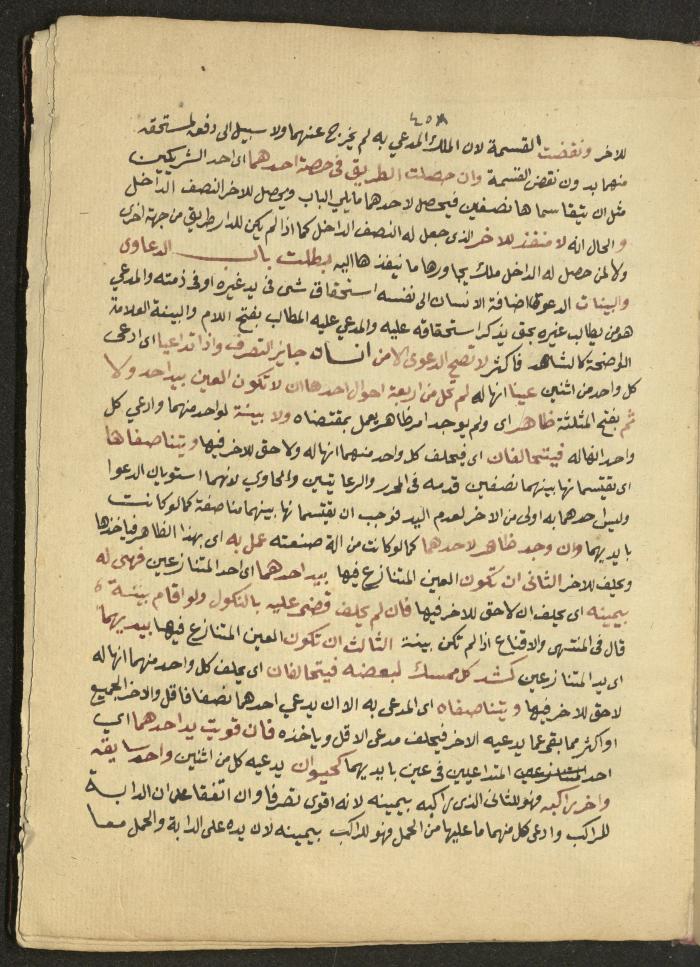 ٤٥٨
للاخر ونقضت القسمة لان الملك المدعي به لم يخرج عنهما ولا سبيل الى دفعه لمستحقه
منهما بدون نقض القسمة وان حصلت الطريق فى حصة احدهما اى احد الشريكين
مثل ان يتقاسماها نصفين فيحصل لاحدهما مايلي الباب ويحصل للاخر النصف الداخل
والحال انه لا منفذ للاخر الذى جعل له النصف الداخل كما اذا لم يكن للدار طريق من جهة اخرى
ولا لمن حصل له الداخل ملك يجاورها ما نيفذها اليه بطلت باب الدعاوى
والبينات الدعوة اضافة الانسان الى نفسه استحقاق شى فى يد غيره او فى ذمته والمدعي
هو من يطالب غيره بحق يذكر استحقاقه عليه والمدعي عليه المطالب بفتح اللام والبينة العلامة
الواضحة كالشاهد فاكثر لا تصح الدعوى الا من انسان جايز التصرف واذا تداعيا اى ادعى
كل واحد من اثنين عينا انها له لم تخل من اربعة احوال احدها ان لا تكون العين بيد احد ولا
ثم بفتح المثلثة ظاهر اى ولم يوجد امر ظاهر يعمل بمقتضاه ولا بينة لواحد منهما وادعي كل
واحد انها له فيتحالفان اى فيحلف كل واحد منهما انها له ولا حق للاخر فيها ويتناصفاها
اى يقتسمانها بينهما نصفين قدمه فى المحرر والرعايتين والحاوي لانهما استويا فى الدعوا
وليس احدهما به اولى من الاخر لعدم اليد فوجب ان يقتسمانها بينهما مناصفة كما لو كانت
بايديهما وان وجد ظاهر لاحدهما كما لو كانت من الة صنعته عمل به اى بهذا الظاهر فياخذها
ويحلف للاخر الثانى ان تكون العين المتنازع فيها بيد احدهما اى احد المتنازعين فهى له
بيمينه اى يحلف ان لا حق للاخر فيها فان لم يحلف قضي عليه بالنكول ولو اقام بينة
قال فى المنتهى والاقناع اذا لم تكن بينة الثالث ان تكون العين المتنازع فيها بيديهما
اى يد المتنازعين كشد كل ممسك لبعضه فيتحالفان اى يحلف كل واحد منهما انها له
لا حق للاخر فيها ويتناصفاه اى المدعى به الا ان يدعي احدهما نصفا فاقل والاخر الجميع
او اكثر مما بقى عما يدعيه الاخر فيحلف مدعى الاقل وياخذه فان قويت يد احدهما اي
احد المتنازعين المتداعيين فى عين بايديهما كحيوان يدعيه كل من اثنين واحد سايقه
واخر راكبه فهو للثانى الذى راكبه بيمينه لانه اقوى تصرفا وان اتفقا على ان الدابة
للراكب وادعى كل منهما ما عليها من الحمل فهو للراكب بيمينه لان يده على الدابة والحمل معا